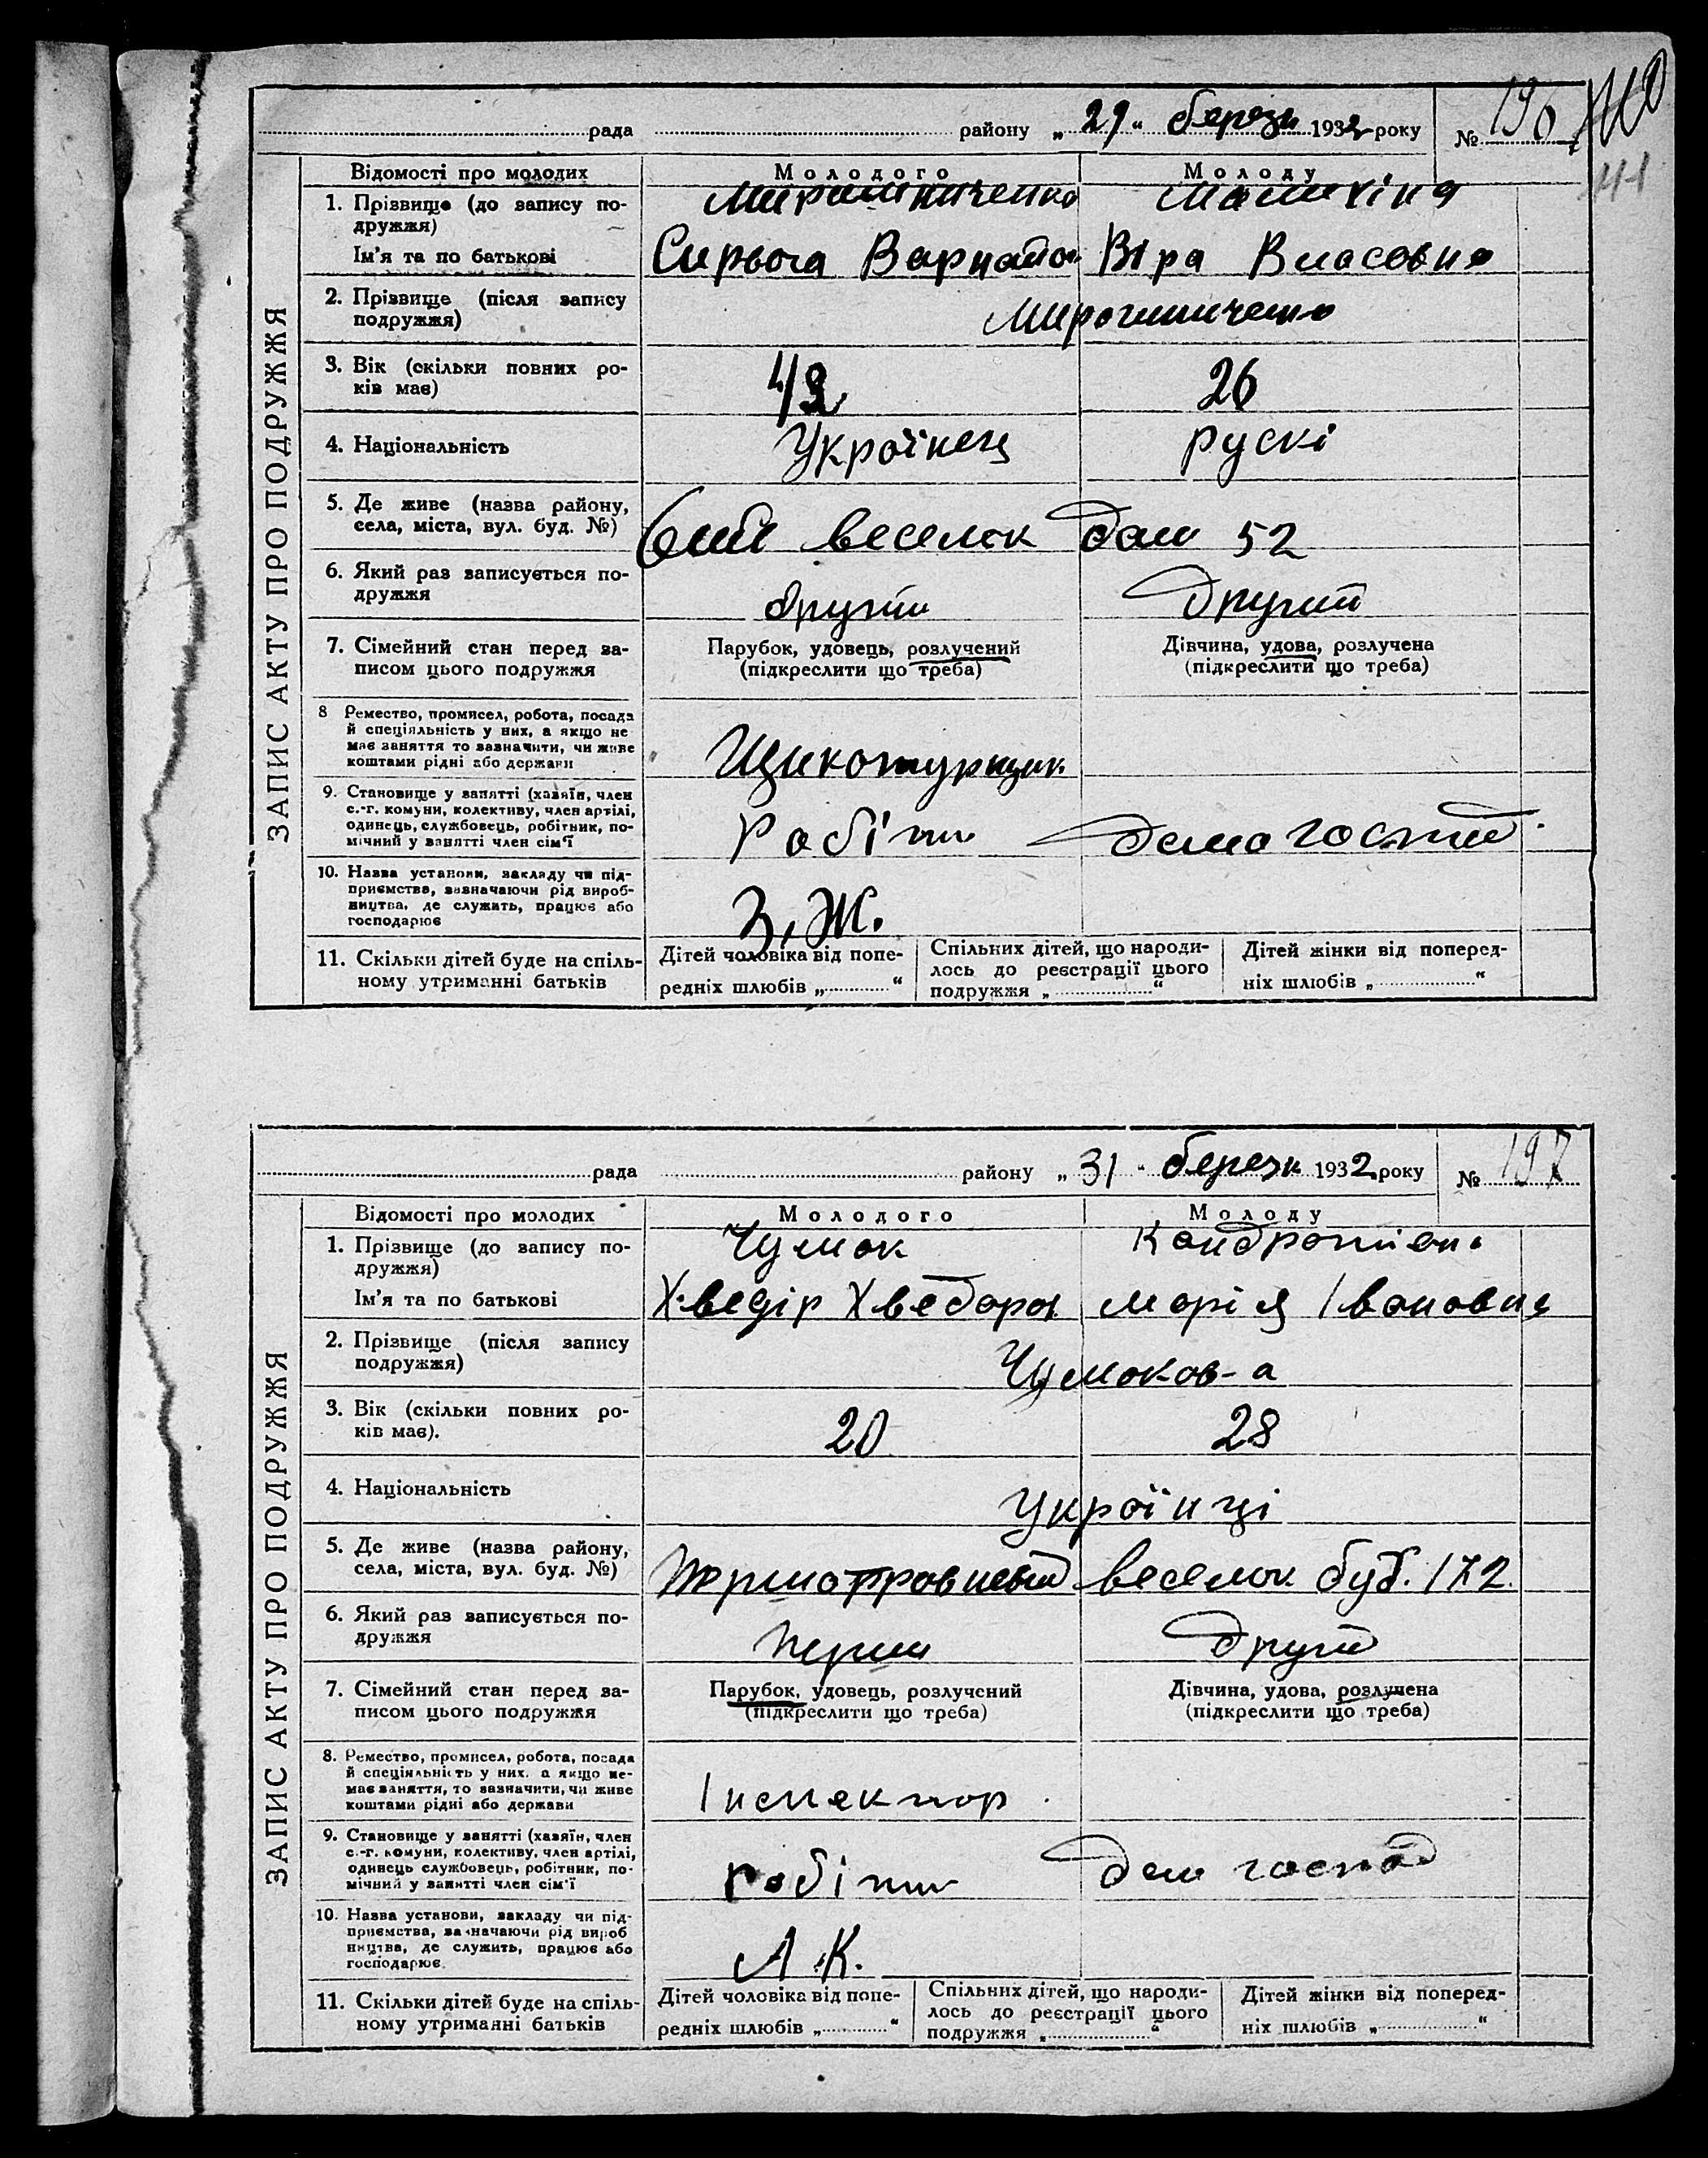 рада району „29“ березн 1932 року № 196
41
ЗАПИС АКТУ ПРО ПОДРУЖЖЯ
Відомості про молодих Молодого Молоду
1. Прізвище (до запису по-
дружжя)
Ім'я та по батькові Віра Власовна
2. Прізвище (після запису
подружжя)
3. Вік (скільки повних ро- 26
ків має)
4. Національність Українец рускі
5. Де живе (назва району,
села, міста, вул. буд. №) веселок дом 52
6. Який раз записується по-
дружжя другий Другий
7. Сімейний стан перед за- Парубок, удовець, розлучений Дівчина, удова, розлучена
писом цього подружжя (підкреслити що треба) (підкреслити що треба)
8 Ремество, промисел, робота, посада
й спеціяльність у них, а якщо не
має заняття то зазначити, чи живе
коштами рідні або держави
9. Становище у занятті (хазяїн, член
с.-г. комуни, колективу, член артілі,
одинець, службовець, робітник, по-
мічний у занятті член сім'ї
10. Назва установи, закладу чи під-
приємства, зазначаючи рід вироб-
ництва, де служить, працює або
господарює З. Ж.
11. Скільки дітей буде на спіль-
ному утриманні батьків
Дітей чоловіка від попе-
редніх шлюбів „ “
Спільних дітей, що народи-
лось до реєстрації цього
подружжя „ “
Дітей жінки від поперед-
ніх шлюбів „ “
рада району „31“ березн 1932 року № 197
ЗАПИС АКТУ ПРО ПОДРУЖЖЯ
Відомості про молодих Молодого Молоду
1. Прізвище (до запису по- Чумак
дружжя)
Ім'я та по батькові Хведір Хведоров Марія Івановна
2. Прізвище (після запису
подружжя) Чумаков-а
3. Вік (скільки повних ро- 20 28
ків має).
4. Національність Українці
5. Де живе (назва району,
села, міста, вул. буд. №) веселок буд. 172
6. Який раз записується по-
дружжя перший другий
7. Сімейний стан перед за- Парубок, удовець, розлучений Дівчина, удова, розлучена
писом цього подружжя (підкреслити що треба) (підкреслити що треба)
8. Ремество, промисел, робота, посада
й спеціяльність у них, а якщо не-
має заняття, то зазначити, чи живе
коштами рідні або держави Інспектор
9. Становище у занятті (хазяїн, член
с.-г. комуни, колективу, член артілі,
одинець службовець, робітник, по-
мічний у занятті член сім'ї дом господ
10. Назва установи, закладу чи під-
приємства, зазначаючи рід вироб
ництва, де служить, працює або
господарює. А. К.
11. Скільки дітей буде на спіль-
ному утриманні батьків
Дітей чоловіка від попе-
редніх шлюбів „ “
Спільних дітей, що народи-
лось до реєстрації цього
подружжя „ “
Дітей жінки від поперед-
ніх шлюбів „ “